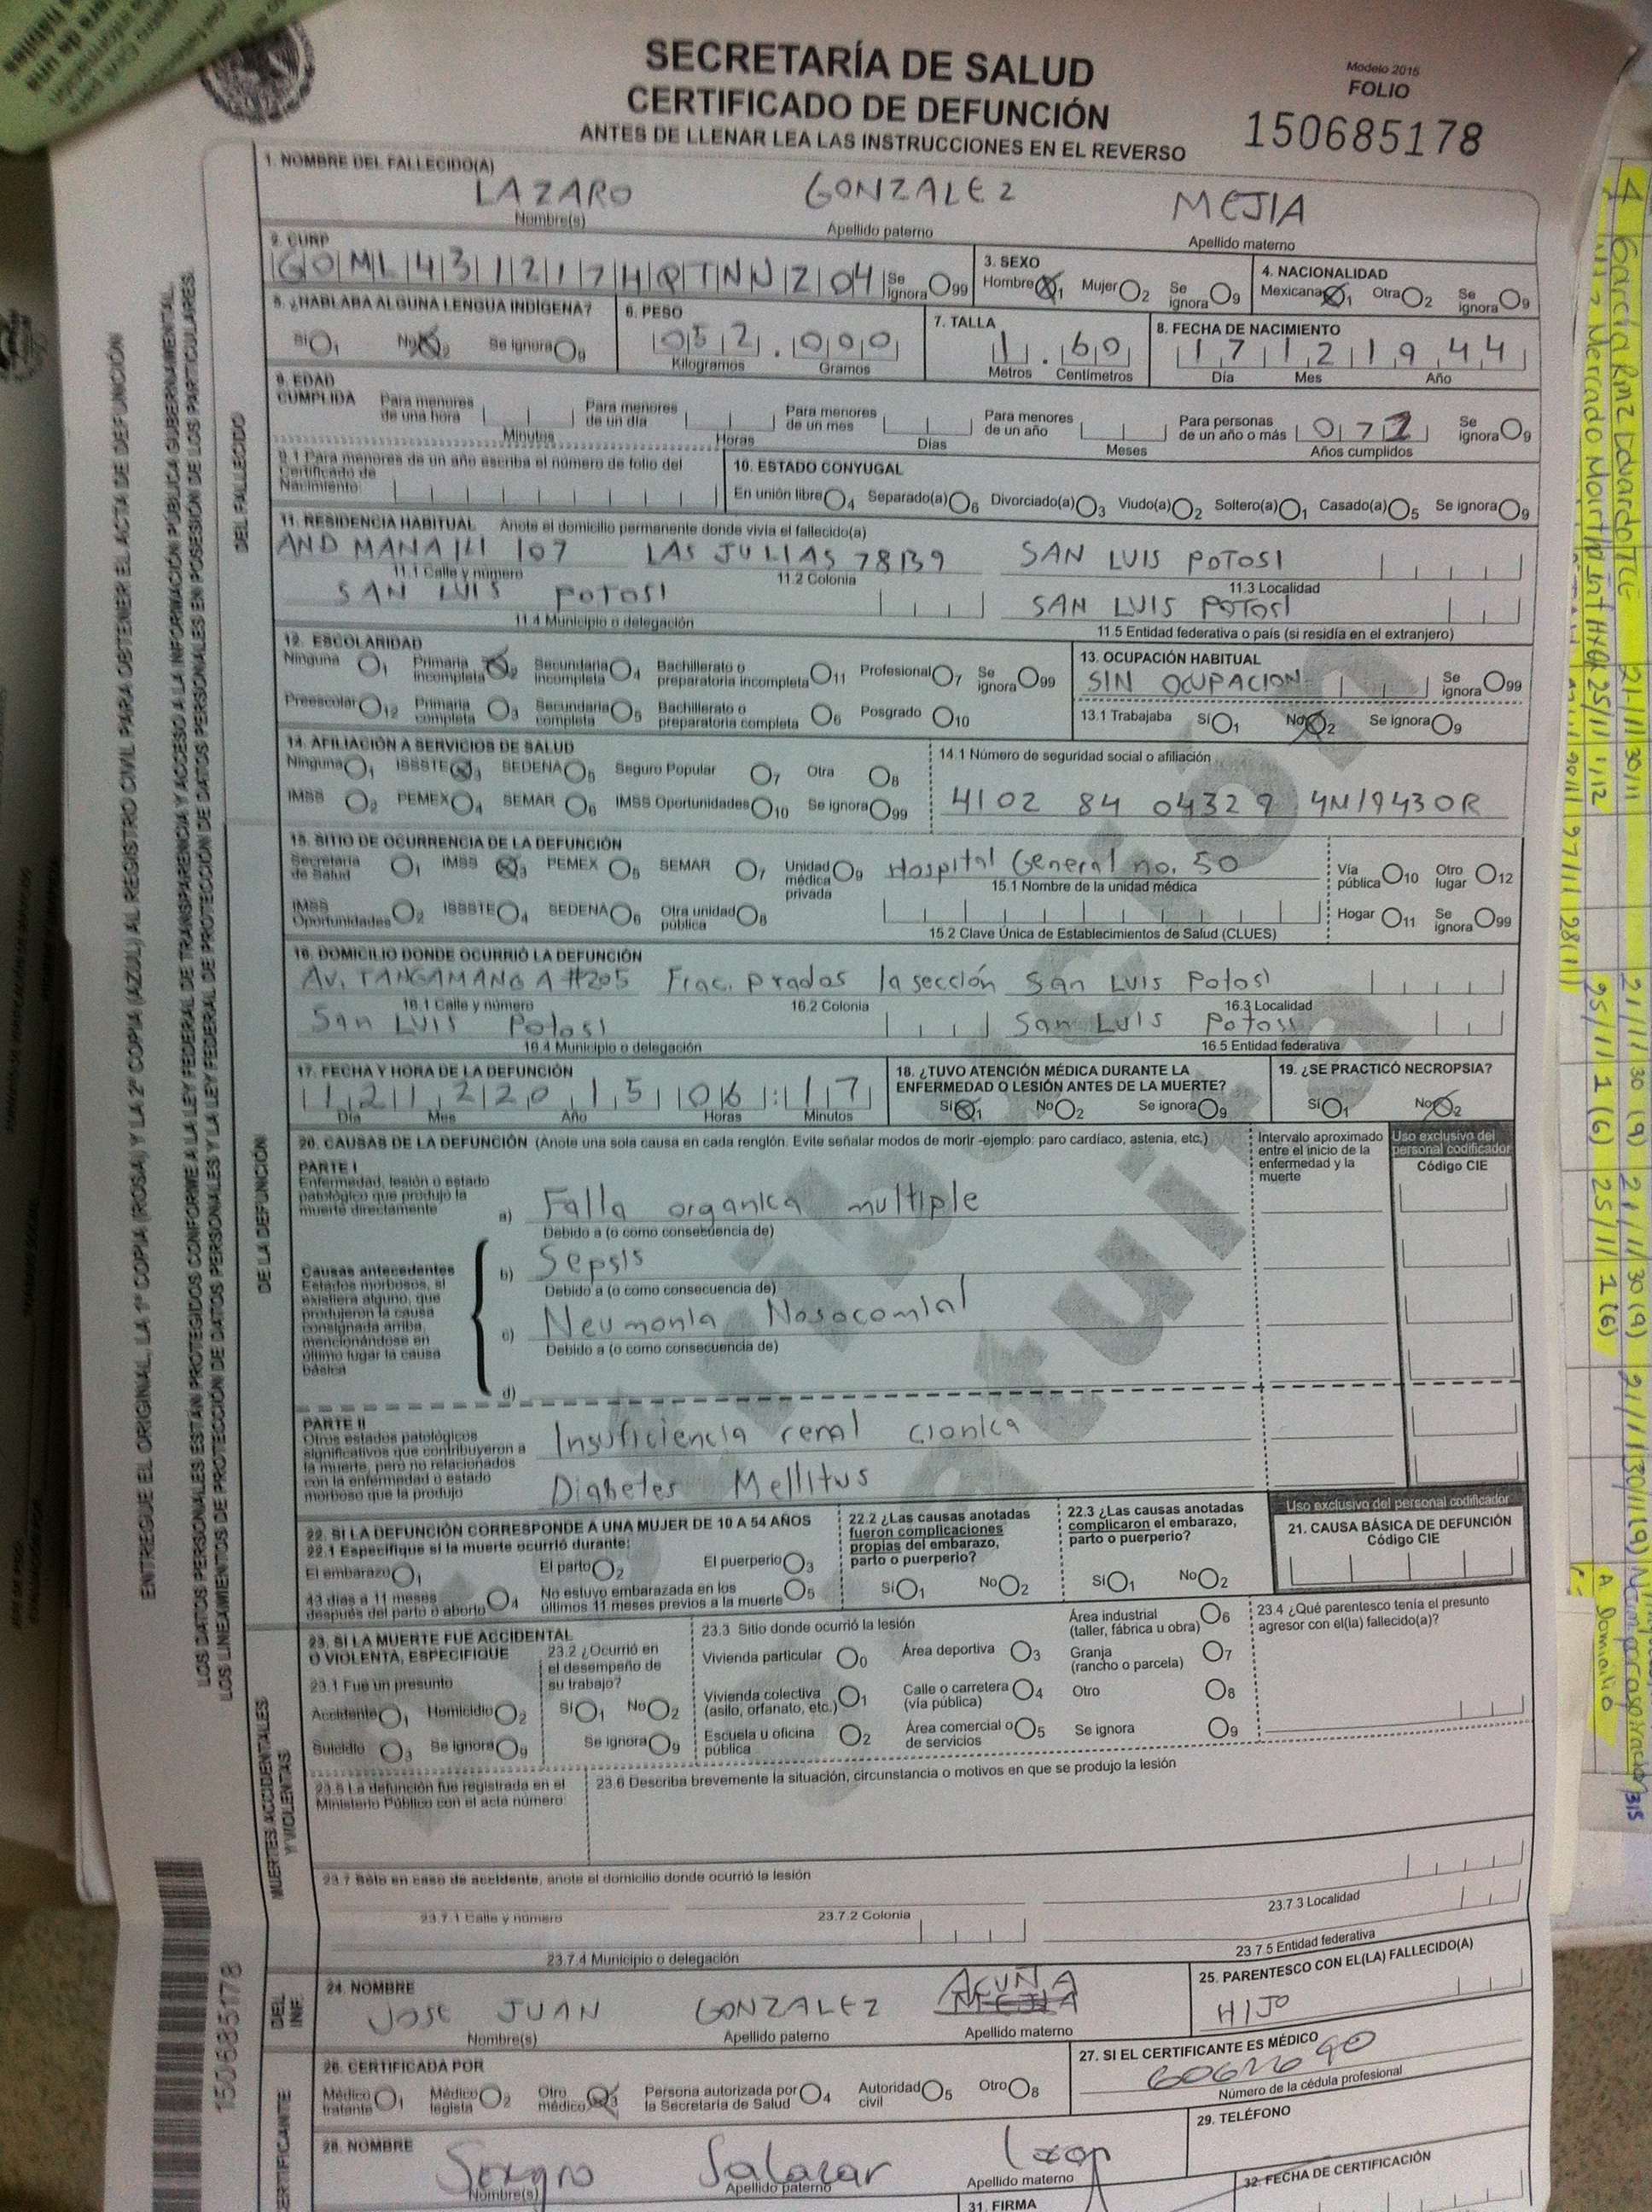 SECRETARÍA DE SALUD
CERTIFICADO DE DEFUNCIÓN
ANTES DE LLENAR LEA LAS INSTRUCCIONES EN EL REVERSO
Modelo 2015
FOLIO
150685178
1. NOMBRE DEL FALLECIDO(A)
LAZARO GONZALEZ MEJIA
Nombre(s) Apellido paterno Apellido materno
2. CURP
Se ignora 99
3. SEXO
Hombre 1 Mujer 2 Se ignora 9
4. NACIONALIDAD
Mexicana 1 Otra 2 Se ignora 9
5. ¿HABLABA ALGUNA LENGUA INDÍGENA?
Sí 1 No 2 Se ignora 9
6. PESO
052.000
Kilogramos Gramos
7. TALLA
1.60
Metros Centímetros
8. FECHA DE NACIMIENTO
17 12 1944
Día Mes Año
9. EDAD CUMPLIDA
Para menores de una hora Minutos
Para menores de un día Horas
Para menores de un mes Días
Para menores de un año Meses
Para personas de un año o más Años cumplidos
Se ignora 9
9.1 Para menores de un año escriba el número de folio del Certificado de Nacimiento:
10. ESTADO CONYUGAL
En unión libre 4 Separado(a) 6 Divorciado(a) 3 Viudo(a) 2 Soltero(a) 1 Casado(a) 5 Se ignora 9
11. RESIDENCIA HABITUAL Anote el domicilio permanente donde vivía el fallecido(a)
AND 107 LAS JULIAS 78139 SAN LUIS POTOSI
11.1 Calle y número 11.2 Colonia 11.3 Localidad
SAN LUIS POTOSI SAN LUIS POTOSI
11.4 Municipio o delegación 11.5 Entidad federativa o país (si residía en el extranjero)
12. ESCOLARIDAD
Ninguna 1 Primaria incompleta 2 Secundaria incompleta 4 Bachillerato o preparatoria incompleta 11 Profesional 7 Se ignora 99
Preescolar 12 Primaria completa 3 Secundaria completa 5 Bachillerato o preparatoria completa 6 Posgrado 10
13. OCUPACIÓN HABITUAL
SIN OCUPACION Se ignora 99
13.1 Trabajaba Sí 1 No 2 Se ignora 9
14. AFILIACIÓN A SERVICIOS DE SALUD
Ninguna 1 ISSSTE 3 SEDENA 5 Seguro Popular 7 Otra 8
IMSS 2 PEMEX 4 SEMAR 6 IMSS Oportunidades 10 Se ignora 99
14.1 Número de seguridad social o afiliación
4102 84 04329 4M19430R
15. SITIO DE OCURRENCIA DE LA DEFUNCIÓN
Secretaría de Salud 1 IMSS 3 PEMEX 5 SEMAR 7 Unidad médica privada 9
IMSS Oportunidades 2 ISSSTE 4 SEDENA 6 Otra unidad pública 8
Hospital General no. 50
15.1 Nombre de la unidad médica
15.2 Clave Única de Establecimientos de Salud (CLUES)
Vía pública 10 Otro lugar 12
Hogar 11 Se ignora 99
16. DOMICILIO DONDE OCURRIÓ LA DEFUNCIÓN
Av. TANGAMANGA #205 Frac. Prados 1a sección San Luis Potosi
16.1 Calle y número 16.2 Colonia 16.3 Localidad
San Luis Potosi San Luis Potosi
16.4 Municipio o delegación 16.5 Entidad federativa
17. FECHA Y HORA DE LA DEFUNCIÓN
12 12 2015 06:17
Día Mes Año Horas Minutos
18. ¿TUVO ATENCIÓN MÉDICA DURANTE LA ENFERMEDAD O LESIÓN ANTES DE LA MUERTE?
Sí 1 No 2 Se ignora 9
19. ¿SE PRACTICÓ NECROPSIA?
Sí 1 No 2
20. CAUSAS DE LA DEFUNCIÓN (Anote una sola causa en cada renglón. Evite señalar modos de morir -ejemplo: paro cardíaco, astenia, etc.)
Intervalo aproximado entre el inicio de la enfermedad y la muerte
Uso exclusivo del personal codificador
Código CIE
PARTE I
Enfermedad, lesión o estado patológico que produjo la muerte directamente
a) Falla organica multiple
Debido a (o como consecuencia de)
Causas antecedentes
Estados morbosos, si existiera alguno, que produjeron la causa consignada arriba, mencionándose en último lugar la causa básica
b) Sepsis
Debido a (o como consecuencia de)
c) Neumonia Nosocomial
Debido a (o como consecuencia de)
d)
PARTE II
Otros estados patológicos significativos que contribuyeron a la muerte, pero no relacionados con la enfermedad o estado morboso que la produjo
Insuficiencia renal cronica
Diabetes Mellitus
22. SI LA DEFUNCIÓN CORRESPONDE A UNA MUJER DE 10 A 54 AÑOS
22.1 Especifique si la muerte ocurrió durante:
El embarazo 1 El parto 2 El puerperio 3
43 días a 11 meses después del parto o aborto 4 No estuvo embarazada en los últimos 11 meses previos a la muerte 5
22.2 ¿Las causas anotadas fueron complicaciones propias del embarazo, parto o puerperio?
Sí 1 No 2
22.3 ¿Las causas anotadas complicaron el embarazo, parto o puerperio?
Sí 1 No 2
Uso exclusivo del personal codificador
21. CAUSA BÁSICA DE DEFUNCIÓN
Código CIE
23. SI LA MUERTE FUE ACCIDENTAL O VIOLENTA, ESPECIFIQUE
23.1 Fue un presunto
Accidente 1 Homicidio 2
Suicidio 3 Se ignora 9
23.2 ¿Ocurrió en el desempeño de su trabajo?
Sí 1 No 2
Se ignora 9
23.3 Sitio donde ocurrió la lesión
Vivienda particular 0 Área deportiva 3 Área industrial (taller, fábrica u obra) 6
Vivienda colectiva (asilo, orfanato, etc.) 1 Calle o carretera (vía pública) 4 Granja (rancho o parcela) 7
Escuela u oficina pública 2 Área comercial o de servicios 5 Otro 8
Se ignora 9
23.4 ¿Qué parentesco tenía el presunto agresor con el(la) fallecido(a)?
23.5 La defunción fue registrada en el Ministerio Público con el acta número:
23.6 Describa brevemente la situación, circunstancia o motivos en que se produjo la lesión
23.7 Sólo en caso de accidente, anote el domicilio donde ocurrió la lesión
23.7.1 Calle y número 23.7.2 Colonia 23.7.3 Localidad
23.7.4 Municipio o delegación 23.7.5 Entidad federativa
24. NOMBRE
JOSE JUAN GONZALEZ ACUÑA
Nombre(s) Apellido paterno Apellido materno
25. PARENTESCO CON EL(LA) FALLECIDO(A)
HIJO
26. CERTIFICADA POR
Médico tratante 1 Médico legista 2 Otro médico 3 Persona autorizada por la Secretaría de Salud 4 Autoridad civil 5 Otro 8
27. SI EL CERTIFICANTE ES MÉDICO
Número de la cédula profesional
28. NOMBRE
Salazar
Nombre(s) Apellido paterno Apellido materno
29. TELÉFONO
31. FIRMA
32. FECHA DE CERTIFICACIÓN
ENTREGUE EL ORIGINAL, LA 1ª COPIA (ROSA) Y LA 2ª COPIA (AZUL) AL REGISTRO CIVIL PARA OBTENER EL ACTA DE DEFUNCIÓN
LOS DATOS PERSONALES ESTÁN PROTEGIDOS CONFORME A LA LEY FEDERAL DE TRANSPARENCIA Y ACCESO A LA INFORMACIÓN PÚBLICA GUBERNAMENTAL,
LOS LINEAMIENTOS DE PROTECCIÓN DE DATOS PERSONALES Y LA LEY FEDERAL DE PROTECCIÓN DE DATOS PERSONALES EN POSESIÓN DE LOS PARTICULARES.
DEL FALLECIDO
DE LA DEFUNCIÓN
MUERTES ACCIDENTALES Y VIOLENTAS
150685178